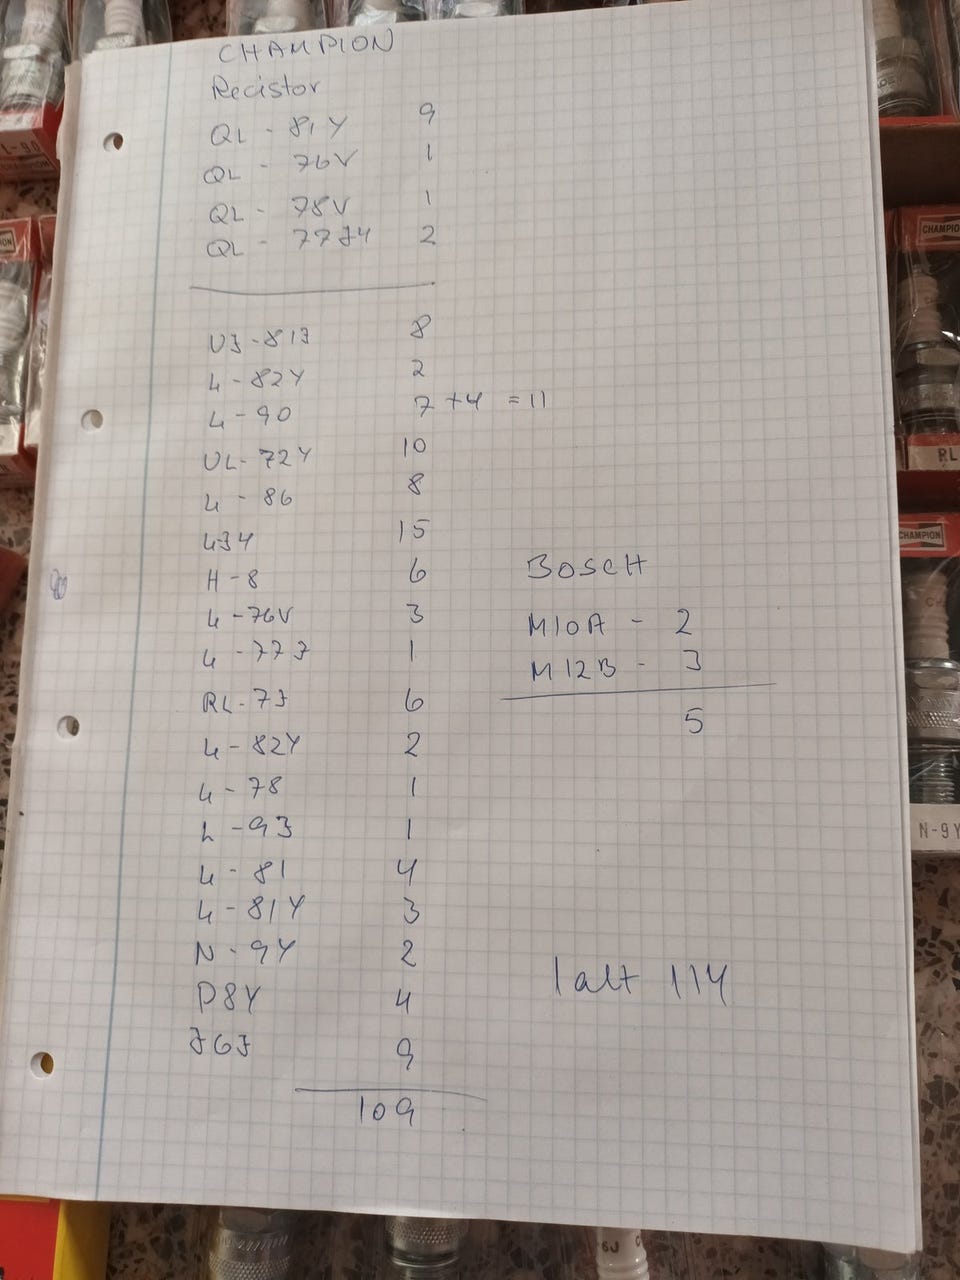 CHAMPION
Recistor
QL - 81Y 9
QL - 76V 1
QL - 78V 1
QL - 77J4 2
UJ-81J 8
L-82Y 2
L-90 7+4 =11
UL-72Y 10
L-86 8
LJ4 15
H-8 6
L-76V 3
L-77J 1
RL-7J 6
L-82Y 2
L-78 1
L-93 1
L-81 4
L-81Y 3
N-9Y 2
P8Y 4
J6J 9
109
BOSCH
M10A - 2
M12B - 3
5
Ialt 114
L-90
CHAMPION
CHAMPION
RL
CHAMPION
N-9Y
6J